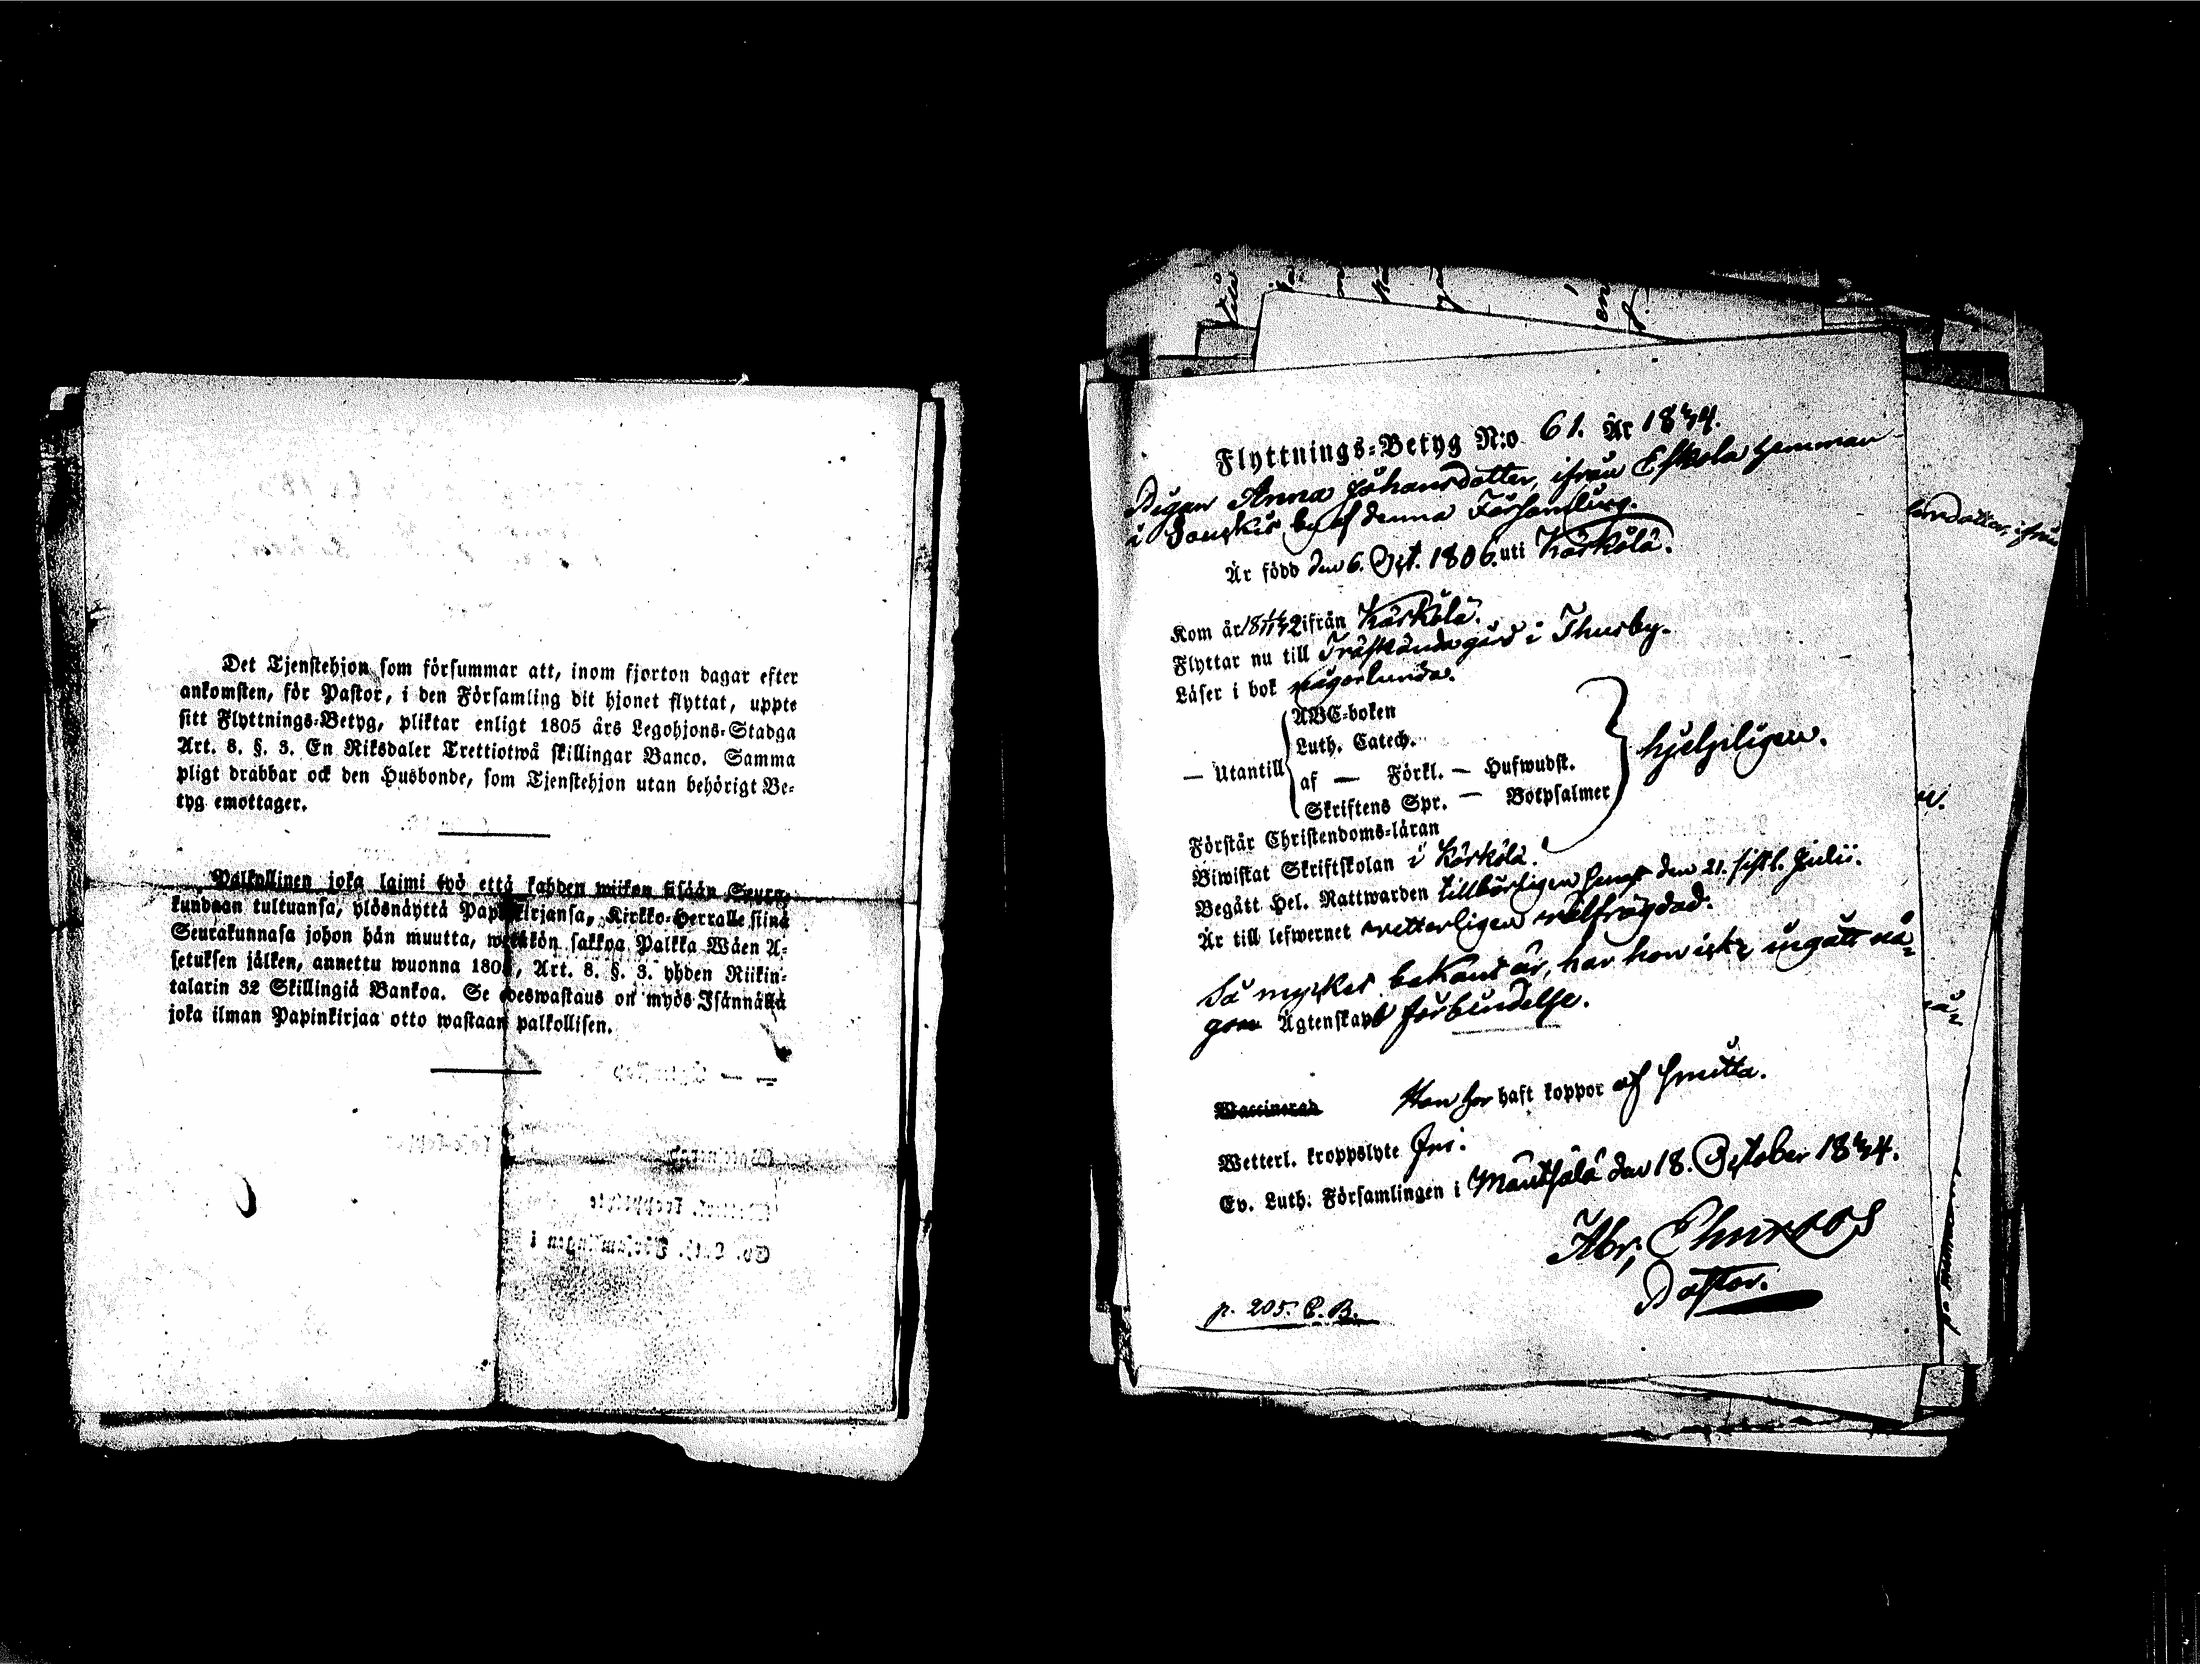 Det Tjenstehjon som försummar att, inom fjorton dagar efter
ankomsten, för Pastor, i den Församling dit hjonet flyttat, uppte
sitt Flyttnings-Betyg, pliktar enligt 1805 års Legohjons-Stadga
Art. 8. §. 3. En Riksdaler Trettiotwå skillingar Banco. Samma
pligt drabbar ock den Husbonde, som Tjenstehjon utan behörigt Be-
tyg emottager.
Palkollinen joka laimi lyö että kahden wiikon sisään Seura-
kundaan tultuansa, ylösnäyttä Papinkirjansa, Kirkko-Herralle siinä
Seurakunnasa johon hän muutta, wetäkön sakkoa Palkka Wäen A-
setuksen jälken, annettu wuonna 1805, Art. 8. §. 3. yhden Riikin-
talarin 32 Skillingiä Bankoa. Se edeswastaus on myös Isännällä
joka ilman Papinkirjaa otto wastaan palkollisen.
Flyttnings-Betyg N:o 61. År 1844.
Pigan Anna Johansdotter, ifrån Eskola hemman
i by af denna Församling.
Är född den 6. Oct. 1806. uti Kärkölä.
Kom år ifrån Kärkölä.
Flyttar nu till Träskända gård i Thusby.
Läser i bok någorlunda.
— Utantill
ABC-boken
Luth. Catech.
af — Förkl. — Hufwudst.
Skriftens Spr. — Botpsalmer
hjelpligen.
Förstår Christendoms-läran
Biwistat Skriftskolan i Kärkölä.
Begått Hel. Nattwarden tillbörligen senast den 21. sistl. Julii.
Är till lefwernet wetterligen välfrägdad.
Så mycket bekant är, har hon icke ingått nå-
gon Ägtenskaps förbindelse.
Waccinerad Hon har haft koppor af smitta.
Wetterl. kroppslyte fri.
Ev. Luth. Församlingen i Mäntsälä den 18. October 1844.
Abr,
Pastor.
p. 205. C. B.